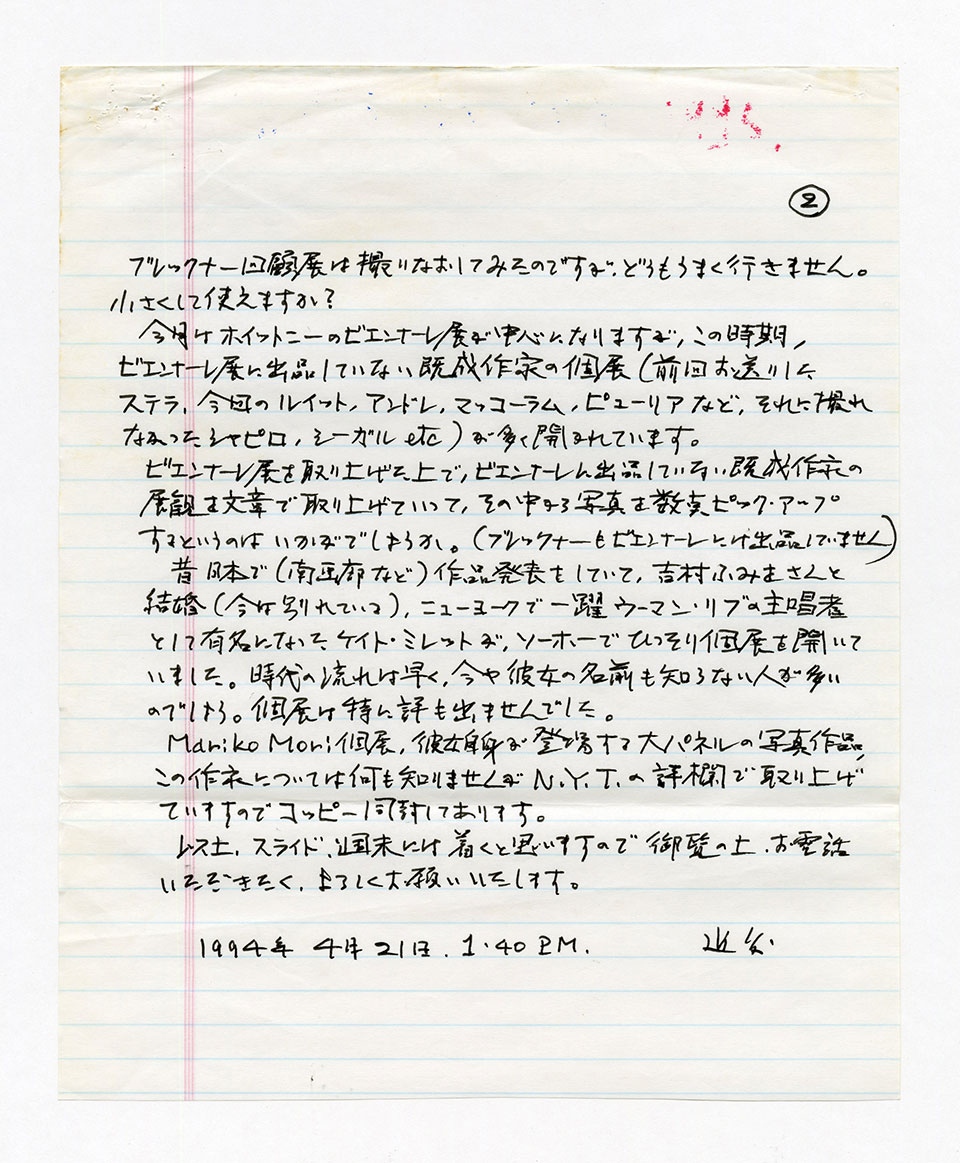 ②
ブレックナー回顧展は撮りなおしてみたのですが、どうもうまく行きません。
小さくして使えますか?
今月はホイットニーのビエンナーレ展が中心になりますが、この時期、
ビエンナーレ展に出品していない既成作家の個展(前回お送りした
ステラ、今回のルイット、アンドレ、マッコーラム、ピューリアなど、それに撮れ
なかったシャピロ、シーガル etc)が多く開かれています。
ビエンナーレ展を取り上げた上で、ビエンナーレに出品していない既成作家の
展観は文章で取り上げていって、その中から写真を数点ピック・アップ
するというのはいかがでしょうか。(ブレックナーもビエンナーレには出品していません)
昔日本で(南画廊など)作品発表もしていて、吉村ふみおさんと
結婚(今は別れている)、ニューヨークで一躍ウーマン・リブの主唱者
として有名になったケイト・ミレットが、ソーホーでひっそり個展を開いて
いました。時代の流れは早く、今や彼女の名前も知らない人が多い
のでしょう。個展は特に評も出ませんでした。
Mariko Mori個展、彼女自身が登場する大パネルの写真作品、
この作家については何も知りませんが N.Y.T.の評欄で取り上げ
ていますのでコッピー同封してあります。
スライド、週末には着くと思いますので御覧の上、お電話
いただきたく、よろしくお願いいたします。
1994年 4月21日. 1.40 P.M.